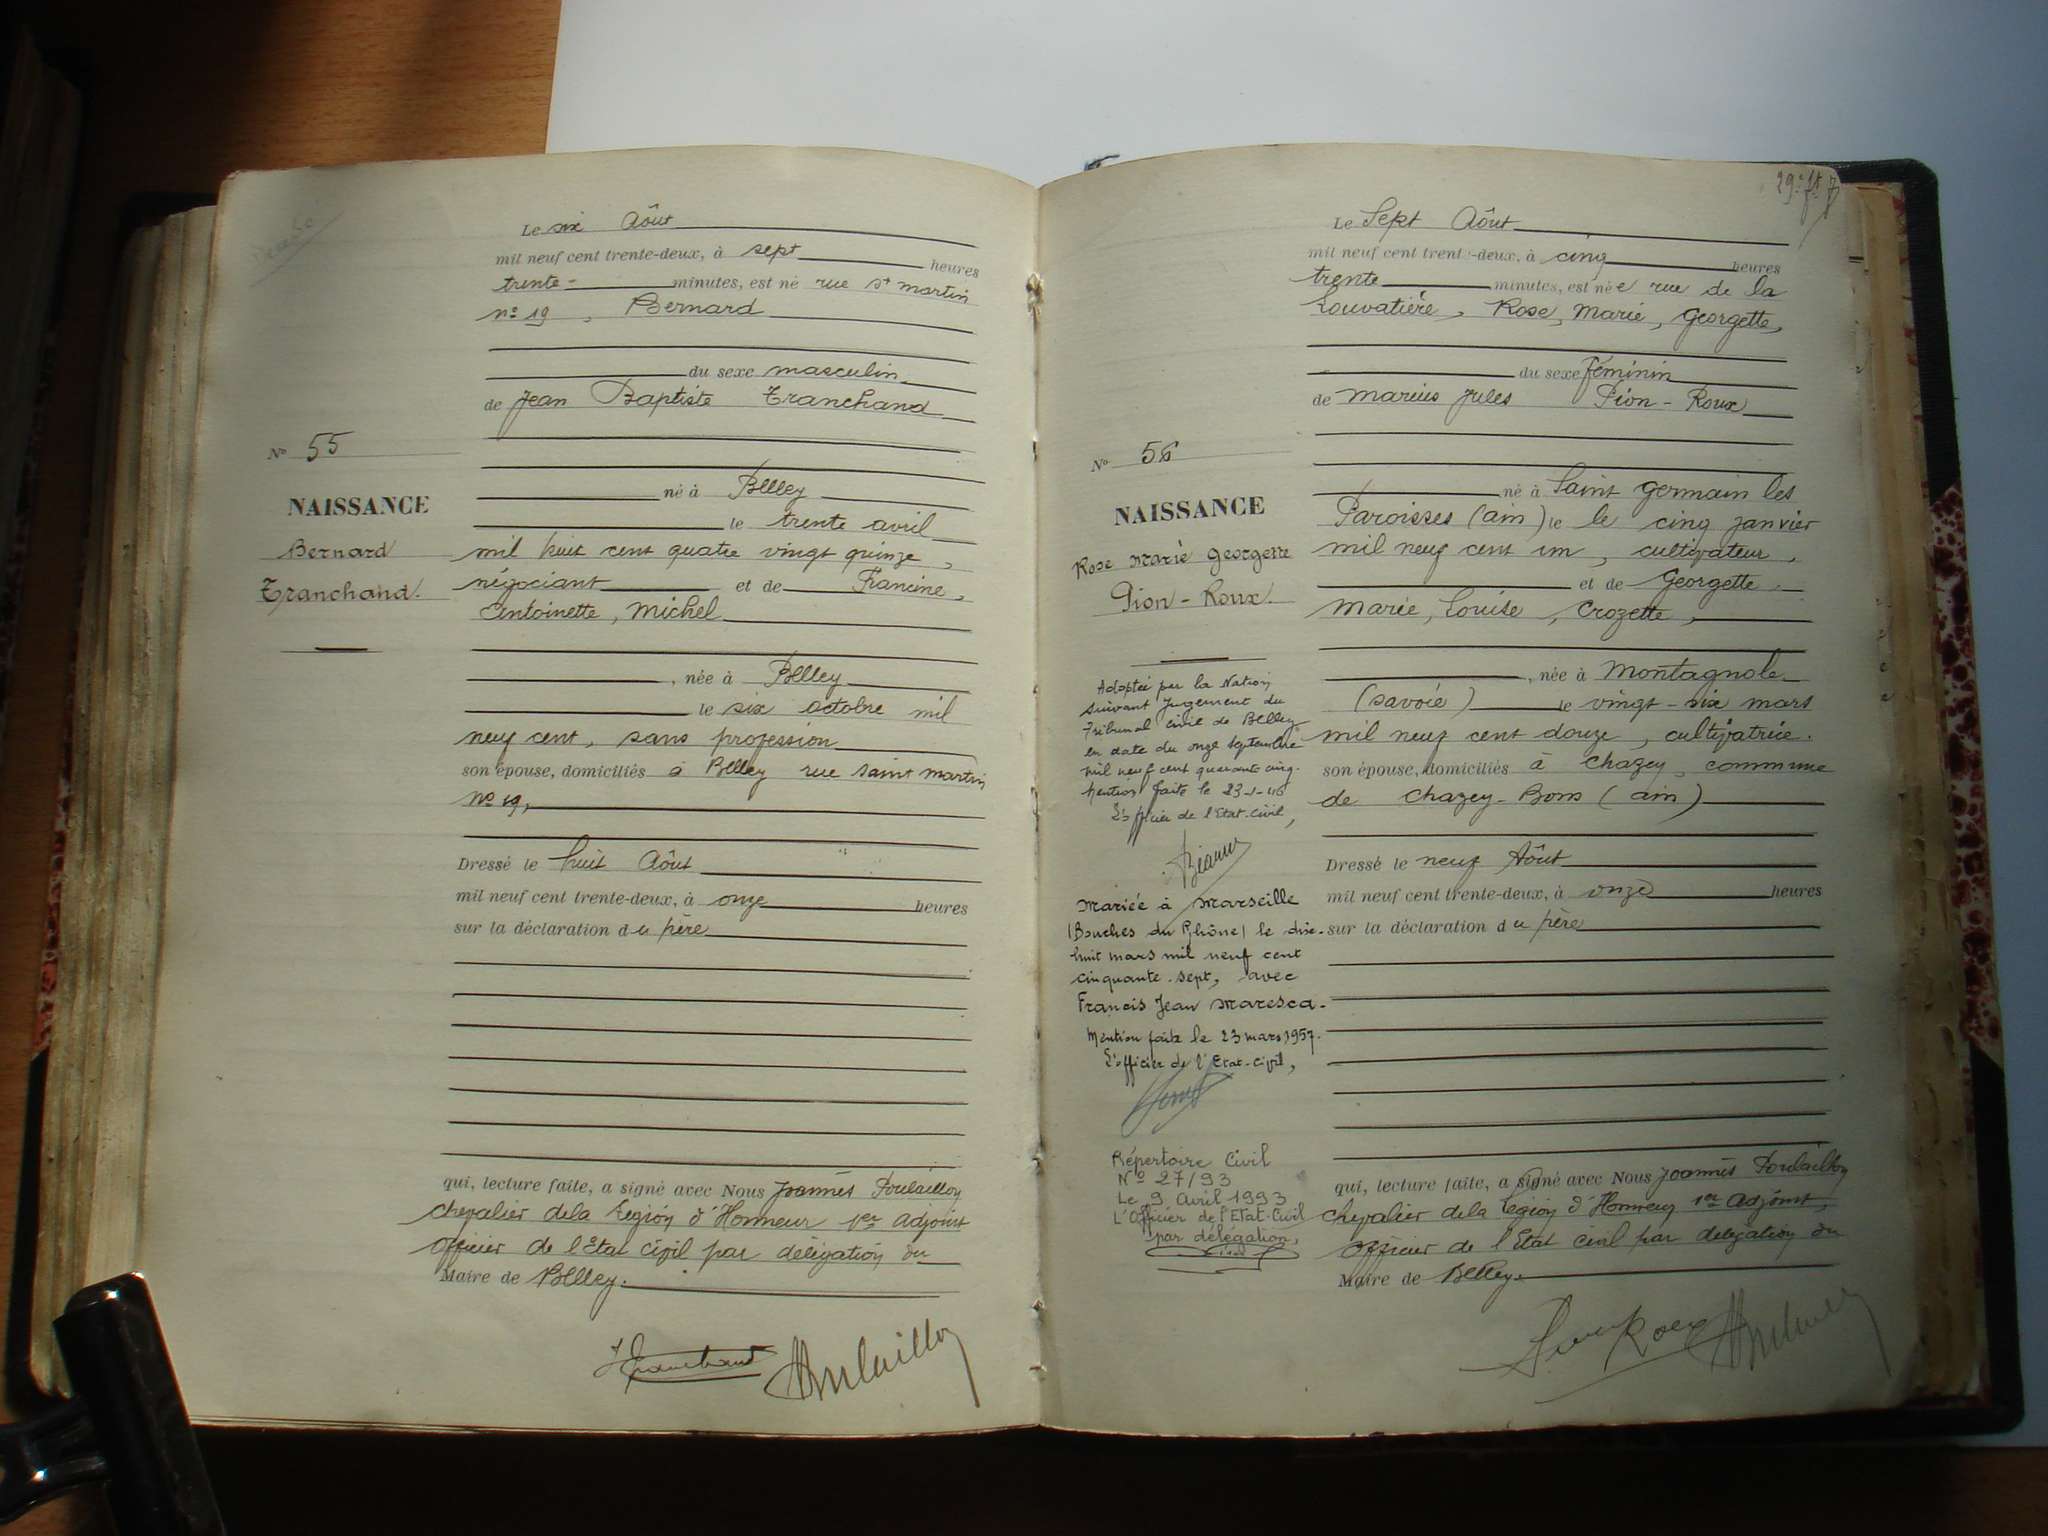 Le six Aôut
mil neuf cent trente-deux, à sept heures
trente minutes, est né rue St martin
no 19, Bernard
du sexe masculin
de Jean Baptiste Tranchand
No 55
NAISSANCE
Bernard
Tranchand.
né à Belley
le trente avril
mil huit cent quatre vingt quinze,
négociant et de Francine,
Antoinette, Michel
, née à Belley
le six octobre mil
neuf cent, sans profession
son épouse, domiciliés à Belley rue saint martin
no 19,
Dressé le huit Aôut
mil neuf cent trente-deux, à onze heures
sur la déclaration du père
qui, lecture faite, a signé avec Nous Joannès Poulaillon
chevalier de la Légion d'Honneur 1er adjoint
officier de l'Etat civil par délégation du
Maire de Belley.
JTranchand Poulaillon
29e ft
Le Sept Aôut
mil neuf cent trente-deux, à cinq heures
trente minutes, est née rue de la
Louvatière, Rose, Marie, Georgette,
du sexe feminin
de Marius Jules Pion-Roux
No 56
NAISSANCE
Rose Marie Georgette
Pion-Roux.
né à Saint germain les
Paroisses (ain) le le cinq janvier
mil neuf cent un, cultivateur,
et de Georgette,
Marie, Louise, Crozette,
, née à Montagnole
(savoie) le vingt-six mars
mil neuf cent douze, cultivatrice.
son épouse, domiciliés à Chazey, commune
de Chazey-Bons (ain)
Dressé le neuf Aôut
mil neuf cent trente-deux, à onze heures
sur la déclaration du père
qui, lecture faite, a signé avec Nous Joannès Poulaillon
chevalier de la Légion d'Honneur 1er adjoint,
officier de l'Etat civil par délégation du
Maire de Belley.
Pion Roux Poulaillon
Adoptée par la Nation
suivant Jugement du
Tribunal civil de Belley
en date du onze Septembre
mil neuf cent quarante cinq.
Mention faite le 23-1-46
L'officier de l'Etat-civil,
Mariée à Marseille
(Bouches du Rhône) le dix-
huit mars mil neuf cent
cinquante-sept, avec
Francis Jean Maresca.
Mention faite le 23 mars 1957.
L'officier de l'Etat-civil,
Répertoire Civil
No 27/93
Le 9 Avril 1993
L'Officier de l'Etat-Civil
par délégation,